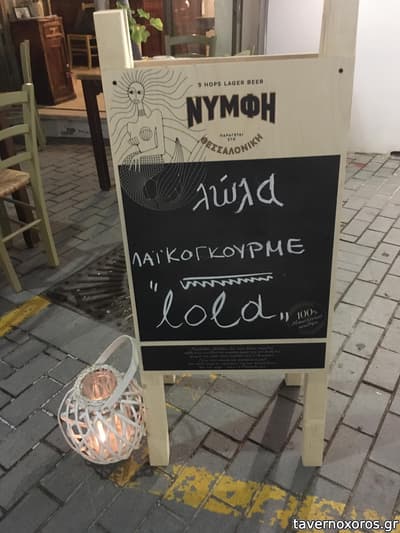 5 HOPS LAGER BEER
ΝΥΜΦΗ
ΠΑΡΑΓΕΤΑΙ
ΣΤΗ
ΘΕΣΣΑΛΟΝΙΚΗ
λώλα
ΛΑΪΚΟΓΚΟΥΡΜΕ
"lola„
100%
tavernoxoros.gr